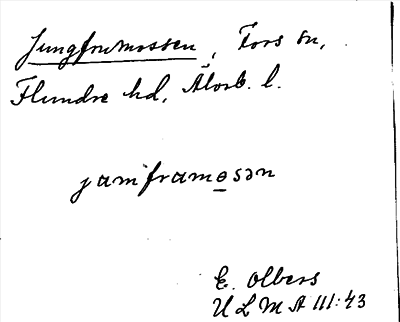 Jungfrumossen, Fors sn,
Flundre hd, Älvsb. l.
jamframo̲sən
E. Olbers
ULMA III:43